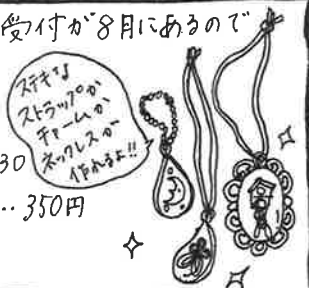 受付が8月にあるので
ステキな
ストラップか
チャームか
ネックレスが
作れるよ!!
30
‥350円